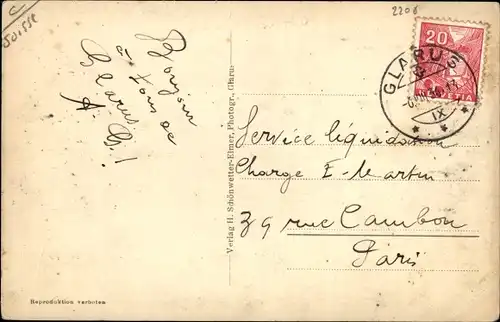 Suisse
2206
Bonjour
à tous de
Glarus
A. G!
Verlag H. Schönwetter-Elmer, Photogr., Glarus
20
GLARUS
IX
Service liquidation
Charge E. Martin
39 rue Cambon
Paris
Reproduktion verboten